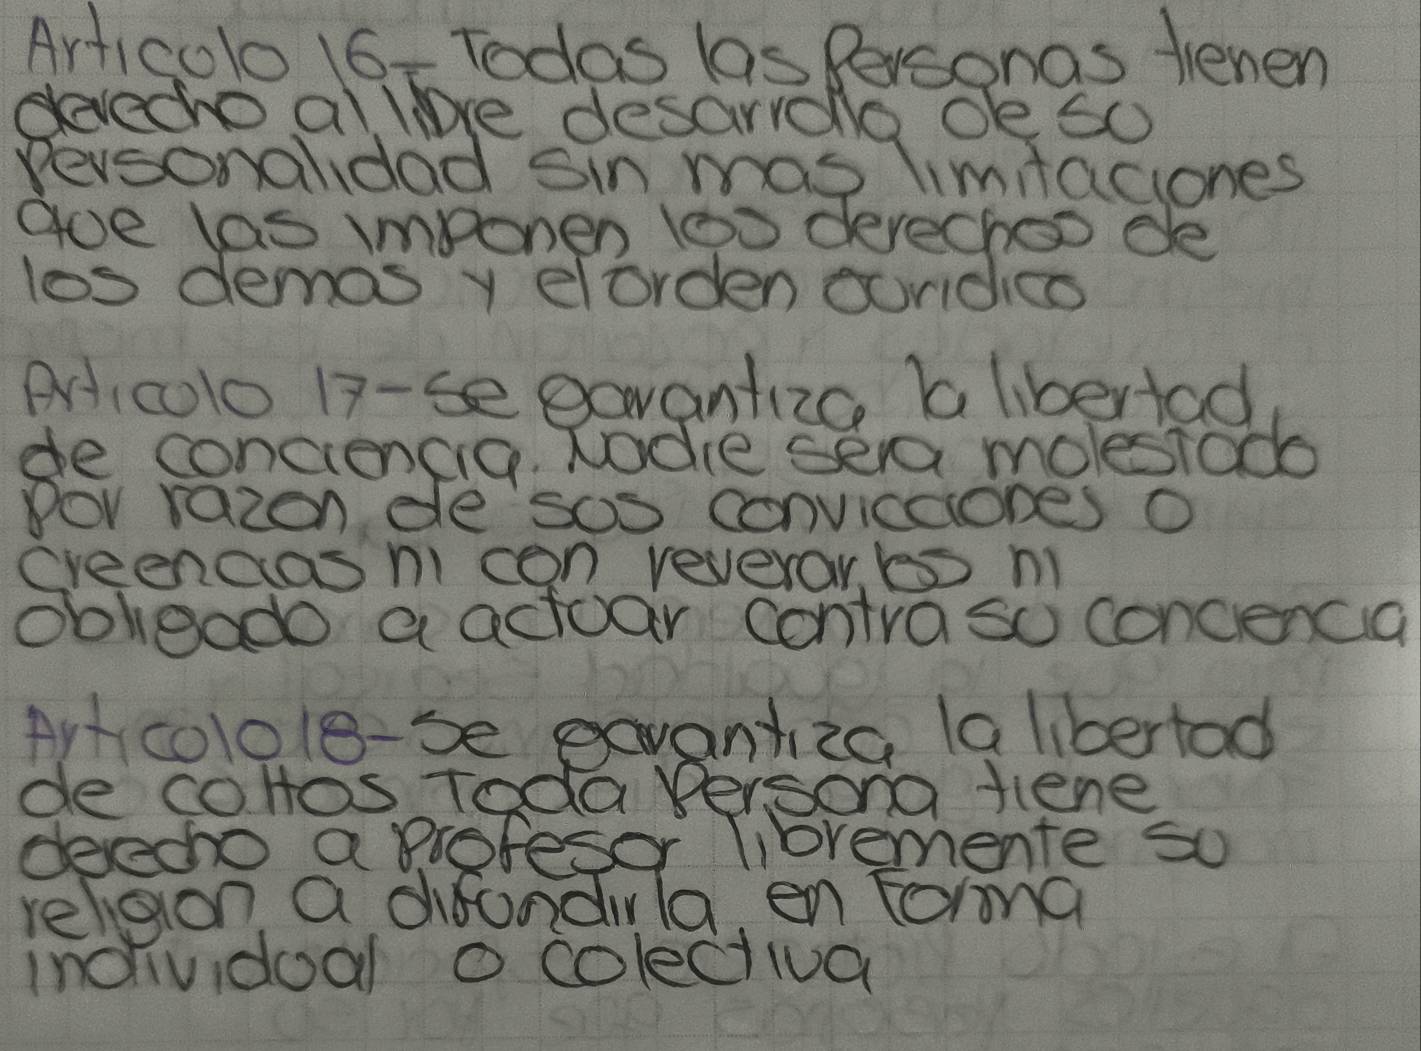 Articolo 16- Todas las Personas tienen
derecho al libre desarrollo de su
Personalidad sin mas limitaciones
que las imponen los derechos de
los demas y el orden ouridico
Articolo 17- se garantiza la libertad
de conciencia. Nadie sera molestado
Por razon de sos convicciones o
creencias ni con reverarlos ni
obligado a actuar contra su conciencia
Articolo 18- Se garantiza la libertad
de coltos Toda Persona tiene
derecho a Profesar libremente su
religion a difundirla en Forma
individual o colectiva